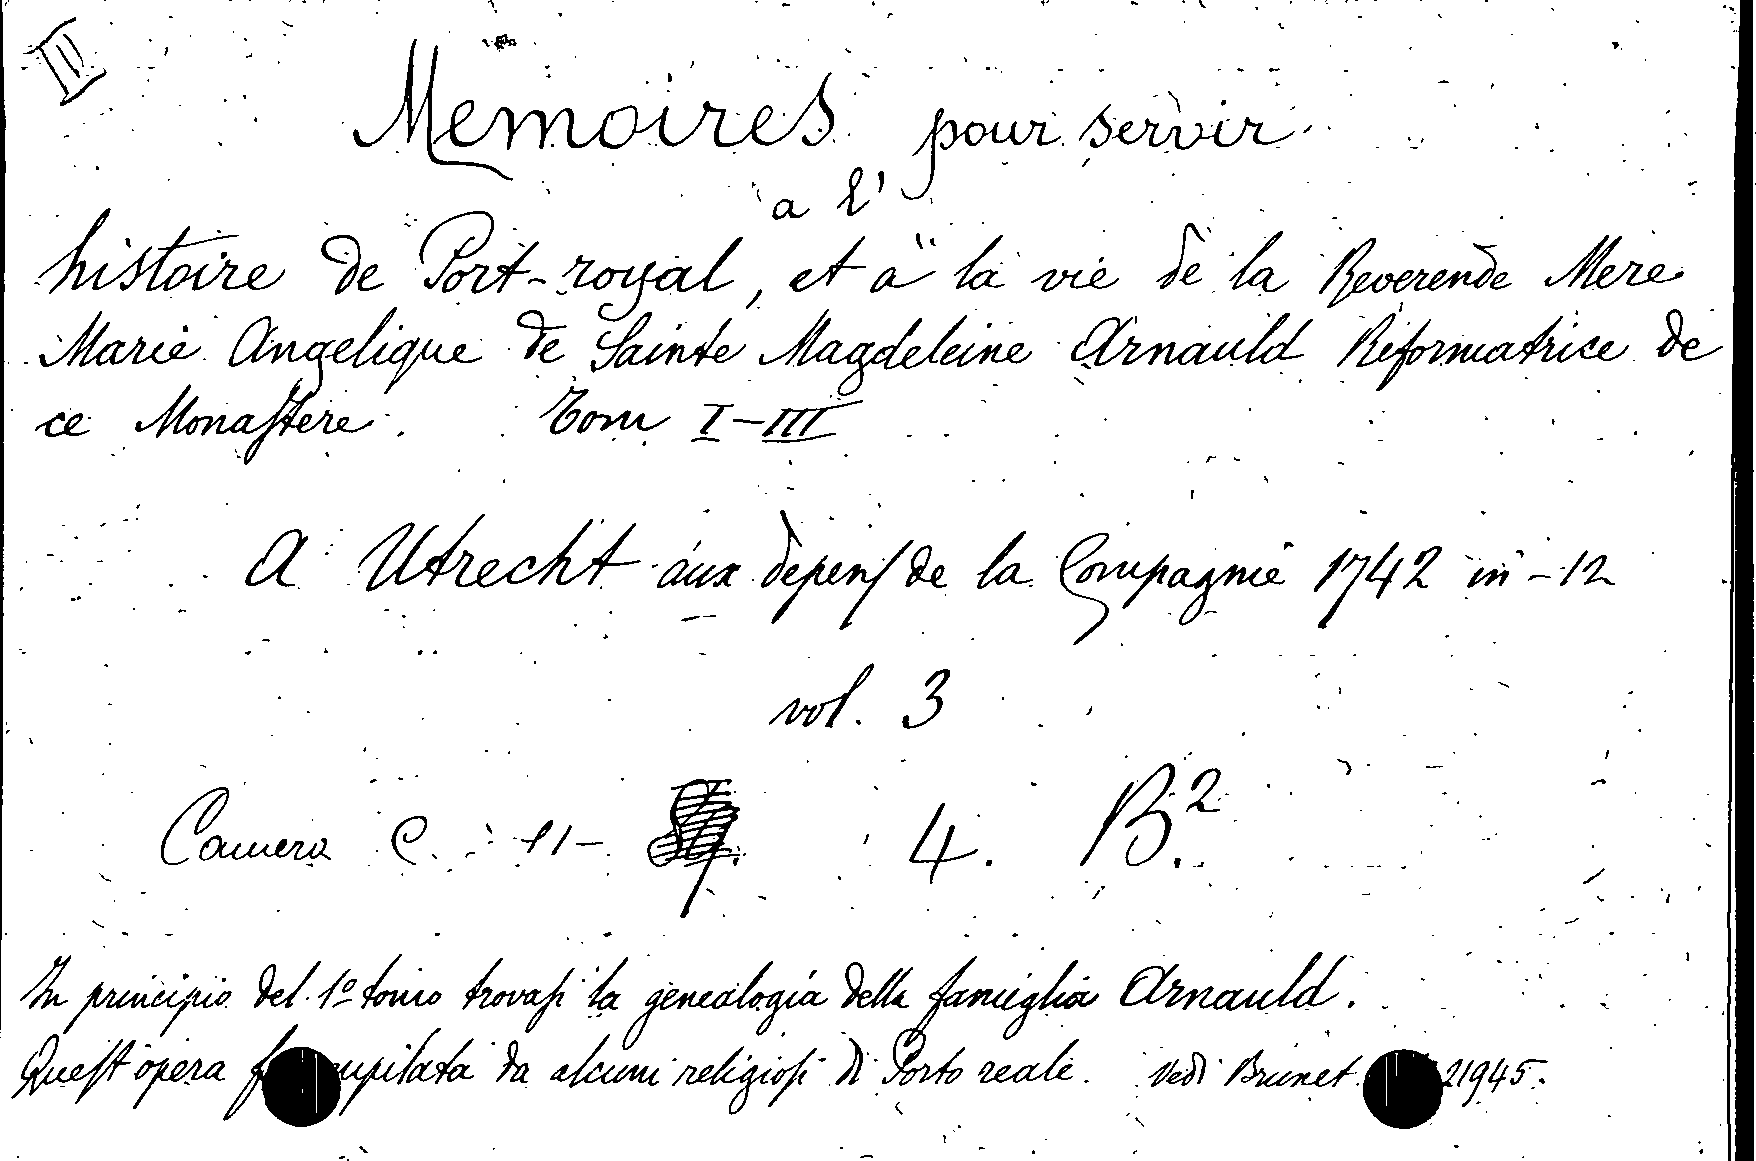 III
Memoires pour servir
a l'
histoire de Port-royal, et a la vie de la Reverende Mere
Marie Angelique de Sainte Magdeleine Arnauld Reformatrice de
ce Monaſtere. Tom I-III
A Utrecht aux depenſ de la Compagnie 1742 in-12
vol. 3
Camera C. 11- 4. B.2
In principio del 1º tomo trovaſi la genealogia della famiglia Arnauld.
Queſt'opera da alcuni religioſi di Porto reale. Vedi Brunet 21945.